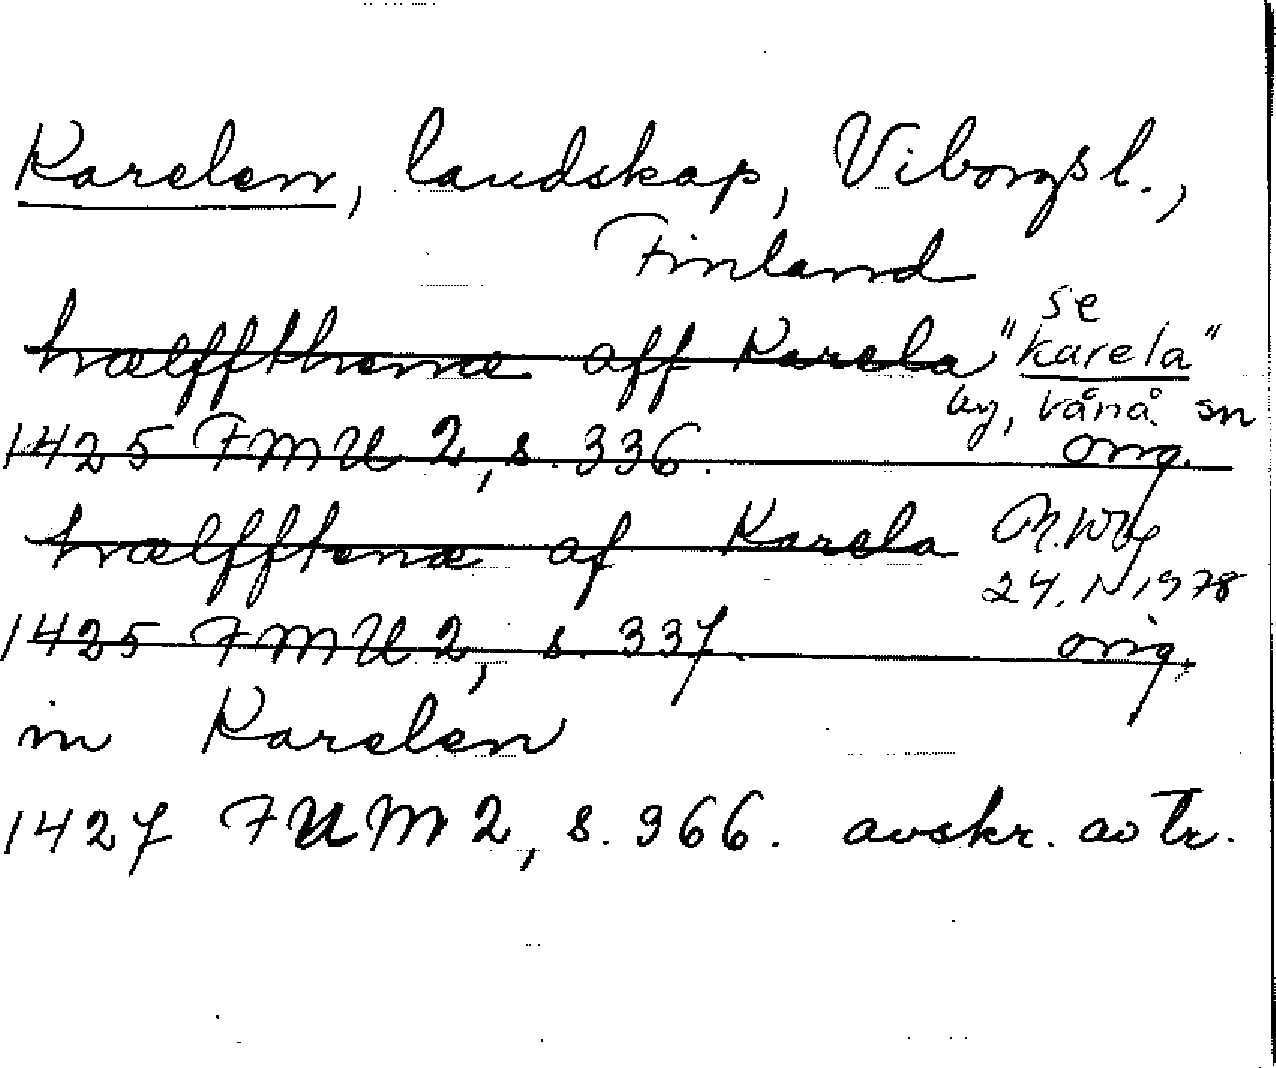 Karelen, landskap, Viborgs l.,
Finland
hælffthenæ aff Karela
se
"karela"
by, Vånå sn
1425 FMU 2, s. 336. orig.
hælfftenæ af Karela
24.1 1978
1425 FMU 2, s. 337. orig.
in Karelen
1427 FUM 2, s. 366. avskr. av Tr.